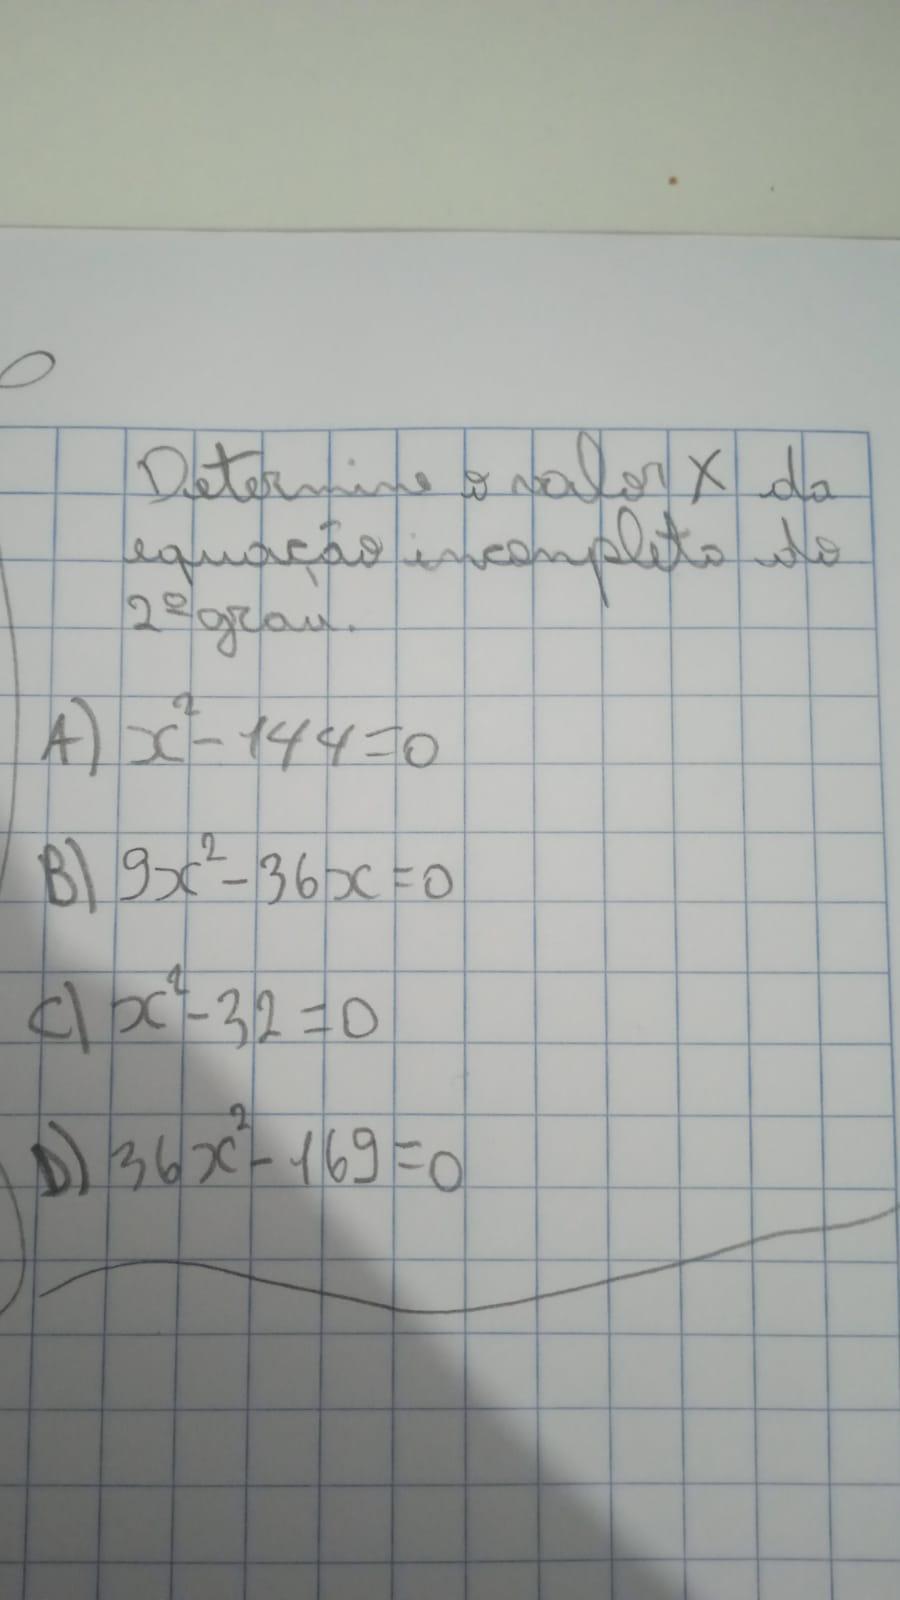 Determine o valor X da
equação incompleta do
2º grau.
A) x² - 144 = 0
B) 9x² - 36x = 0
C) x² - 32 = 0
D) 36x² - 169 = 0